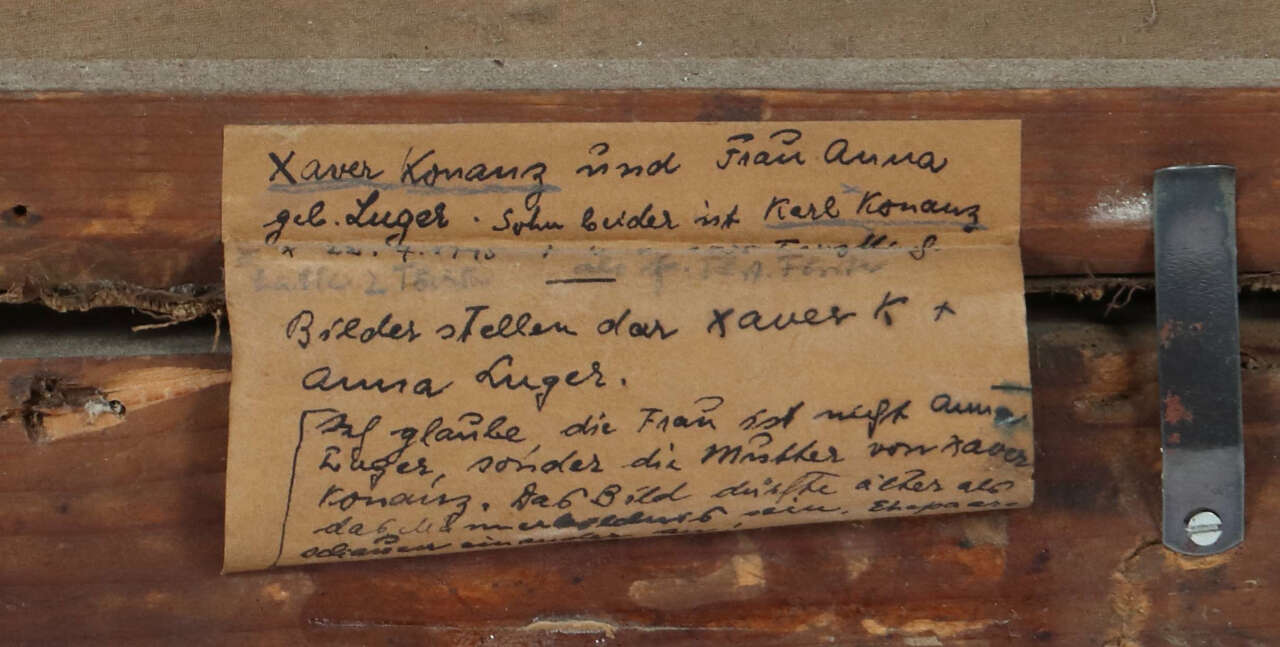 Xaver Konanz und Frau Anna
geb. Luger. Sohn beider ist Karl Konanz
Bilder stellen dar Xaver K +
Anna Luger.
Ich glaube, die Frau ist nicht Anna
Luger, sonder die Mutter von Xaver
Konanz. Das Bild dürfte älter als
das Männerbildnis sein. Ehepaare
schauen einander an